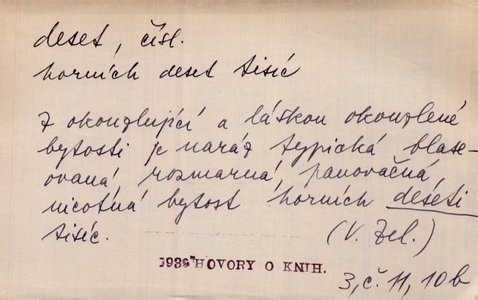 deset, čísl.
horních deset tisíc
Z okouzlující a láskou okouzlené
bytosti je naráz typická blase-
ovaná rozmarná, panovačná,
nicotná bytost horních deseti
tisíc. (V. Zel.)
1936 HOVORY O KNIH.
3, č. 11, 10b